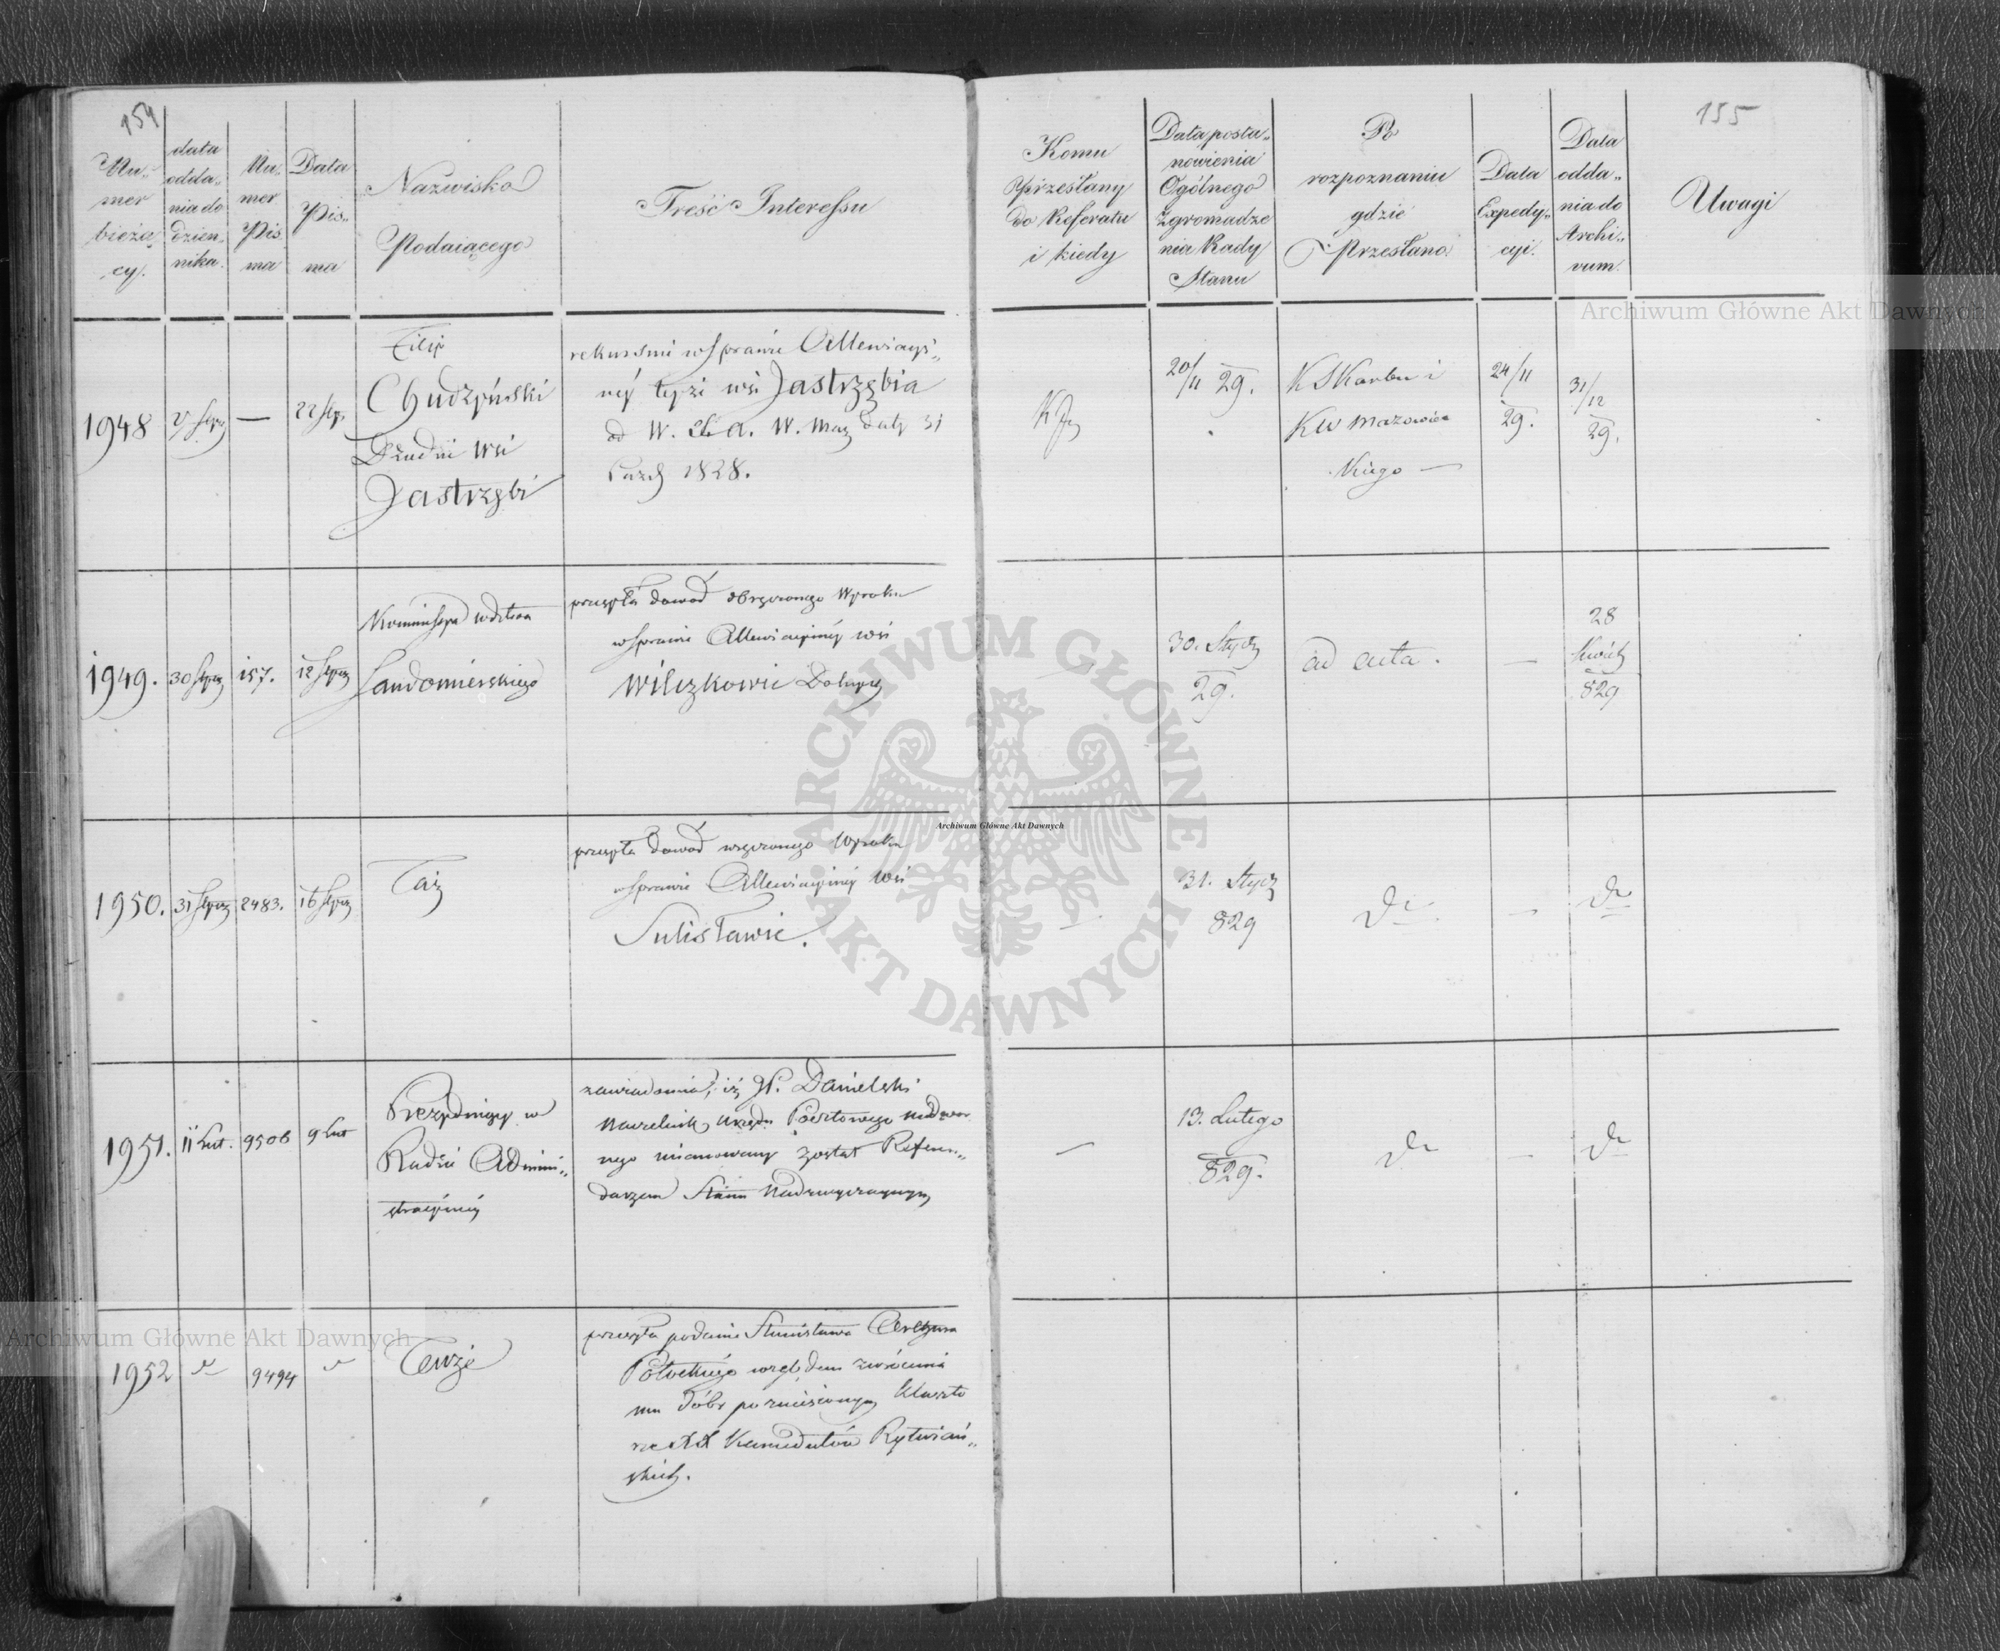 154
Nu-
mer
bieżą
cy.
data
odda-
nia do
dzien-
nika.
Nu-
mer
Pis
ma
Data
Pis-
ma
Nazwisko
Podaiącego
Treść Interessu
Komu
Przesłany
do Referatu
i kiedy
Data posta-
nowienia
Ogólnego
Zgromadze
nia Rady
Stanu
Po
rozpoznaniu
gdzie
Przesłano
Data
Expedy-
cyi.
Data
odda-
nia do
Archi-
vum.
155
Uwagi
1948
—
Filip
Chudzyński
Dziedzic wsi
Jastrzębi
w sprawie Allewiacyi-
néy wsi Jastrzębia
od W.
1828.
20/11 29.
K S Karbu i
KW Mazowiec
kiego —
24/11
29.
31/12
29.
1949.
30 Stycz
157.
12 Stycz
Kommissya wdztwa
Sandomierskiego
przesyła dowód wręczonego Wyroku
w sprawie Allewiacyinéy wsi
Wilczkowic
—
30. Stycz
29.
ad acta.
—
28
Kwiet
829
1950.
31 Stycz
2483.
16 Stycz
Taż
przesyła dowód wręczonego Wyroku
w sprawie Allewiacyinéy wsi
Sulisławic.
—
31. Stycz
829
do
—
do
1951.
11 Lut.
9506
9 Lut
Prezydujący w
Radzie Admini-
stracyinéy
zawiadamia, iż JP. Danielski
Naczelnik Urzędu Pocztowego Nadwor
nego mianowany został Referen-
darzem Stanu Nadzwyczaynym
—
13. Lutego
829.
do
—
do
1952
9494
Tenże
przesyła podanie Stanisława
Potockiego względem zwrócenia
mu Dóbr po zniesionym Klaszto
rze XX Kamedułów Rytwiań-
skich.
Archiwum Główne Akt Dawnych
ARCHIWUM GŁÓWNE
AKT DAWNYCH
Archiwum Główne Akt Dawnych
Archiwum Główne Akt Dawnych